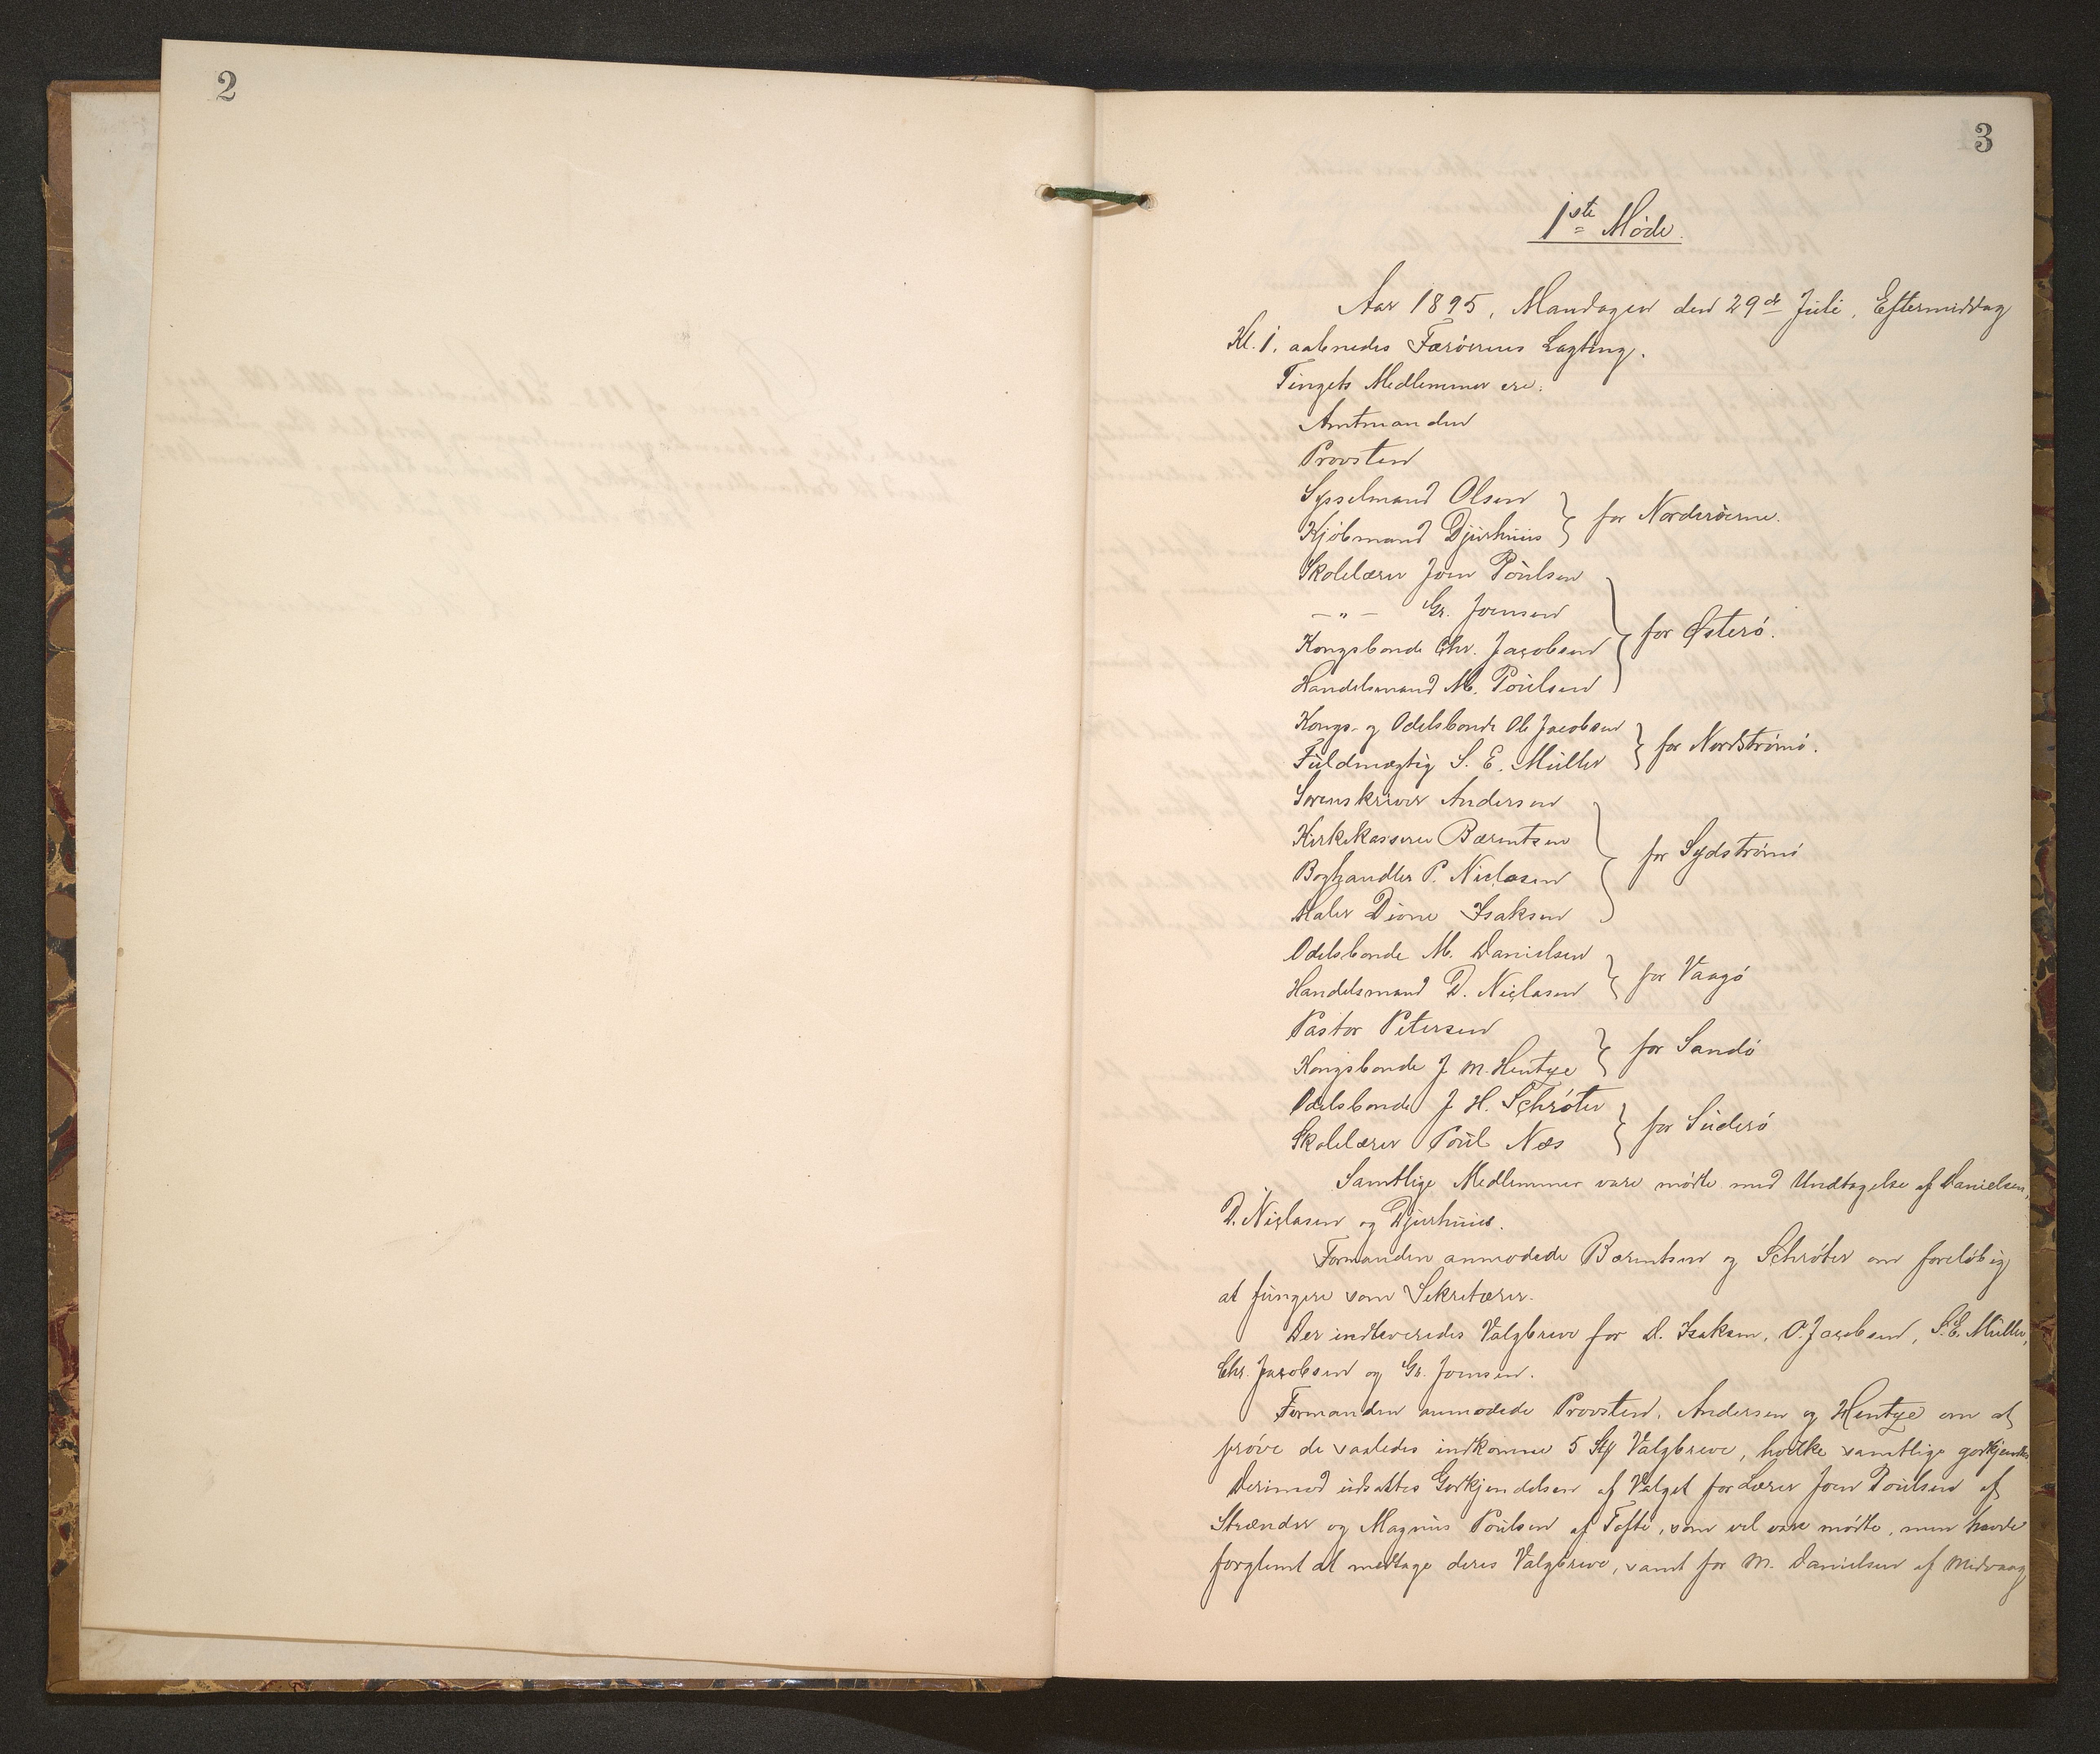 2
3
1ste Møde.
Aar 1895, Mandagen den 29de Juli, Eftermiddag
Kl. 1, aabnedes Færöernes Lagting.
Tingets Medlemmer ere:
Amtmanden
Provsten
Sysselmand Olsen
Kjöbmand Djurhuus } for Norderöerne.
Skolelærer Joen Poulsen
—„— Gr. Joensen
Kongsbonde Chr. Jacobsen } for Østerö.
Handelsmand M. Poulsen
Kongs- og Odelsbonde Ole Jacobsen
Fuldmægtig S. E. Müller } for Nordströmö.
Sorenskriver Andersen
Kirkekasserer Bærentsen
Boghandler P. Niclasen } for Sydströmö
Maler Dione Isaksen
Odelsbonde M. Danielsen
Handelsmand D. Niclasen } for Vaagö
Pastor Petersen
Kongsbonde J. M. Hentze } for Sandö
Odelsbonde J. H. Schröter
Skolelærer Poul Næs } for Suderö
Samtlige Medlemmer vare mödte med Undtagelse af Danielsen,
D. Niclasen og Djurhuus.
Formanden anmodede Bærentsen og Schröter om forelöbig
at fungere som Sekretærer.
Der indleveredes Valgbreve for D. Isaksen, O. Jacobsen, S. E. Müller,
Chr. Jacobsen og Gr. Joensen.
Formanden anmodede Provsten, Andersen og Hentze om at
pröve de saaledes indkomne 5 Stk Valgbreve, hvilke samtlige godkjendtes
Derimod udsattes Godkjendelsen af Valget for Lærer Joen Poulsen af
Strænder og Magnus Poulsen af Tofte, som vel vare mödte, men havde
forglemt at medtage deres Valgbreve, samt for M. Danielsen af Midvaag